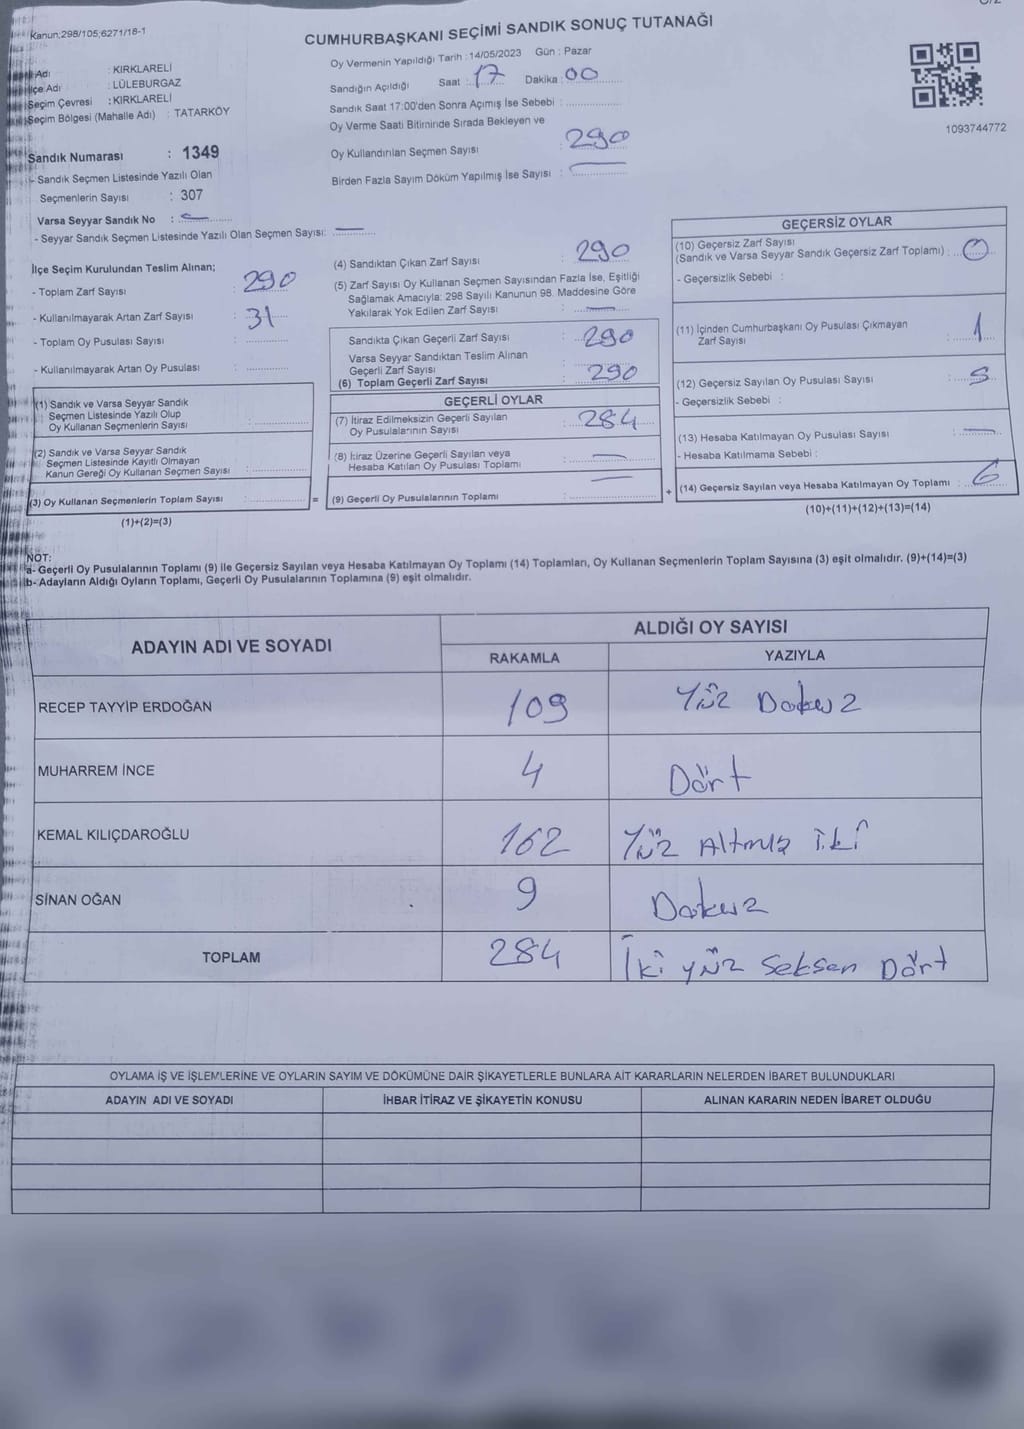 Kanun;298/105,6271/18-1
CUMHURBAŞKANI SEÇİMİ SANDIK SONUÇ TUTANAĞI
Adı : KIRKLARELİ
İlçe Adı : LÜLEBURGAZ
Seçim Çevresi : KIRKLARELİ
Seçim Bölgesi (Mahalle Adı) : TATARKÖY
Sandık Numarası : 1349
- Sandık Seçmen Listesinde Yazılı Olan
Seçmenlerin Sayısı : 307
Varsa Seyyar Sandık No :
- Seyyar Sandık Seçmen Listesinde Yazılı Olan Seçmen Sayısı:
Oy Vermenin Yapıldığı Tarih : 14/05/2023 Gün : Pazar
Sandığın Açıldığı Saat : 17 Dakika : 00
Sandık Saat 17:00'den Sonra Açımış İse Sebebi :
Oy Verme Saati Bitiminde Sırada Bekleyen ve
Oy Kullandırılan Seçmen Sayısı : 290
Birden Fazla Sayım Döküm Yapılmış İse Sayısı :
1093744772
İlçe Seçim Kurulundan Teslim Alınan;
- Toplam Zarf Sayısı : 290
- Kullanılmayarak Artan Zarf Sayısı : 31
- Toplam Oy Pusulası Sayısı :
- Kullanılmayarak Artan Oy Pusulası :
(1) Sandık ve Varsa Seyyar Sandık
Seçmen Listesinde Yazılı Olup
Oy Kullanan Seçmenlerin Sayısı :
(2) Sandık ve Varsa Seyyar Sandık
Seçmen Listesinde Kayıtlı Olmayan
Kanun Gereği Oy Kullanan Seçmen Sayısı :
(3) Oy Kullanan Seçmenlerin Toplam Sayısı : =
(1)+(2)=(3)
(4) Sandıktan Çıkan Zarf Sayısı : 290
(5) Zarf Sayısı Oy Kullanan Seçmen Sayısından Fazla İse, Eşitliği
Sağlamak Amacıyla: 298 Sayılı Kanunun 98. Maddesine Göre
Yakılarak Yok Edilen Zarf Sayısı :
Sandıkta Çıkan Geçerli Zarf Sayısı : 290
Varsa Seyyar Sandıktan Teslim Alınan
Geçerli Zarf Sayısı
(6) Toplam Geçerli Zarf Sayısı : 290
GEÇERLİ OYLAR
(7) İtiraz Edilmeksizin Geçerli Sayılan
Oy Pusulalarının Sayısı : 284
(8) İtiraz Üzerine Geçerli Sayılan veya
Hesaba Katılan Oy Pusulası Toplamı :
(9) Geçerli Oy Pusulalarının Toplamı : +
GEÇERSİZ OYLAR
(10) Geçersiz Zarf Sayısı
(Sandık ve Varsa Seyyar Sandık Geçersiz Zarf Toplamı) : 0
- Geçersizlik Sebebi :
(11) İçinden Cumhurbaşkanı Oy Pusulası Çıkmayan
Zarf Sayısı : 1
(12) Geçersiz Sayılan Oy Pusulası Sayısı : 5
- Geçersizlik Sebebi :
(13) Hesaba Katılmayan Oy Pusulası Sayısı :
- Hesaba Katılmama Sebebi :
(14) Geçersiz Sayılan veya Hesaba Katılmayan Oy Toplamı : 6
(10)+(11)+(12)+(13)=(14)
NOT:
a- Geçerli Oy Pusulalarının Toplamı (9) ile Geçersiz Sayılan veya Hesaba Katılmayan Oy Toplamı (14) Toplamları, Oy Kullanan Seçmenlerin Toplam Sayısına (3) eşit olmalıdır. (9)+(14)=(3)
b- Adayların Aldığı Oyların Toplamı, Geçerli Oy Pusulalarının Toplamına (9) eşit olmalıdır.
ADAYIN ADI VE SOYADI ALDIĞI OY SAYISI
RAKAMLA YAZIYLA
RECEP TAYYİP ERDOĞAN 109 Yüz Dokuz
MUHARREM İNCE 4 Dört
KEMAL KILIÇDAROĞLU 162 Yüz Altmış iki
SİNAN OĞAN 9 Dokuz
TOPLAM 284 İki yüz Seksen Dört
OYLAMA İŞ VE İŞLEMLERİNE VE OYLARIN SAYIM VE DÖKÜMÜNE DAİR ŞİKAYETLERLE BUNLARA AİT KARARLARIN NELERDEN İBARET BULUNDUKLARI
ADAYIN ADI VE SOYADI İHBAR İTİRAZ VE ŞİKAYETİN KONUSU ALINAN KARARIN NEDEN İBARET OLDUĞU